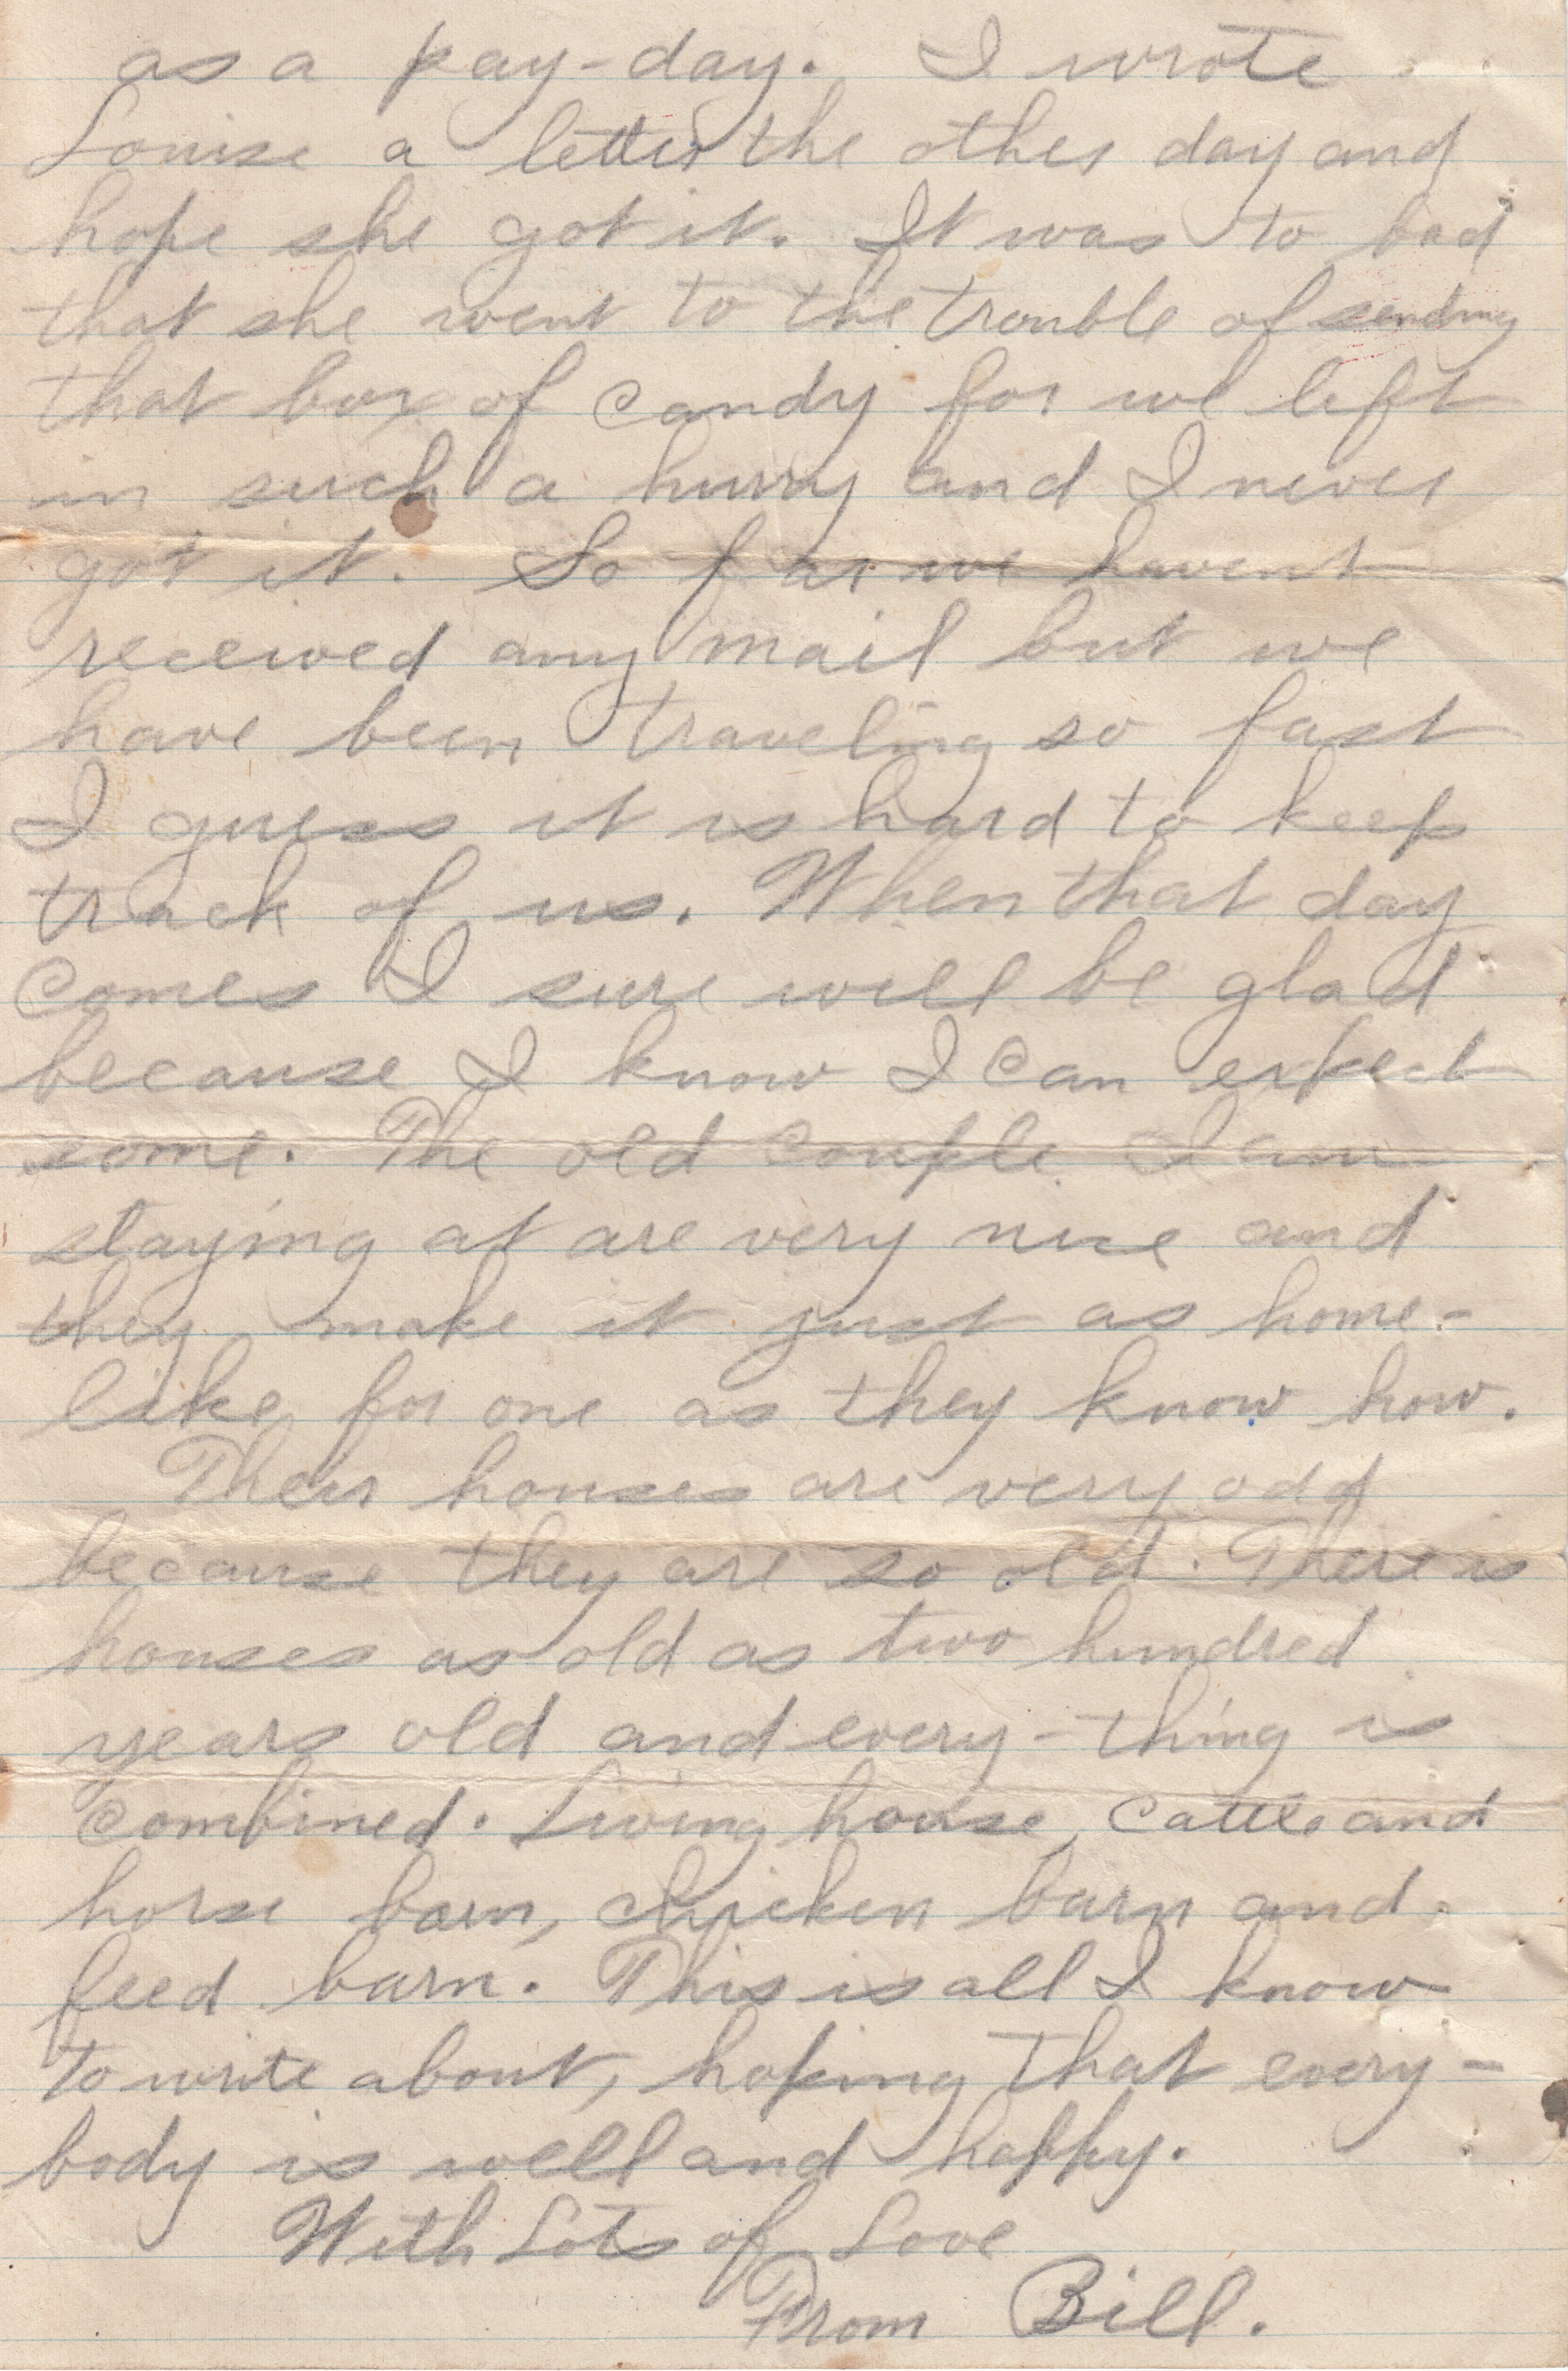 as a pay-day. I wrote
Louise a letter the other day and
hope she got it. It was to bad
that she went to the trouble of sending
that box of candy for we left
in such a hurry and I never
got it. So far we havent
received any mail but we
have been traveling so fast
I guess it is hard to keep
track of us. When that day
comes I sure will be glad
because I know I can expect
some. The old couple I am
staying at are very nice and
they make it just as home-
like for one as they know how.
Their houses are very odd
because they are so old. There is
houses as old as two hundred
years old and every-thing is
combined. Living house, cattle and
horse barn, chicken barn and
feed barn. This is all I know
to write about, hoping that every-
body is well and happy.
With Lots of Love
From Bill.